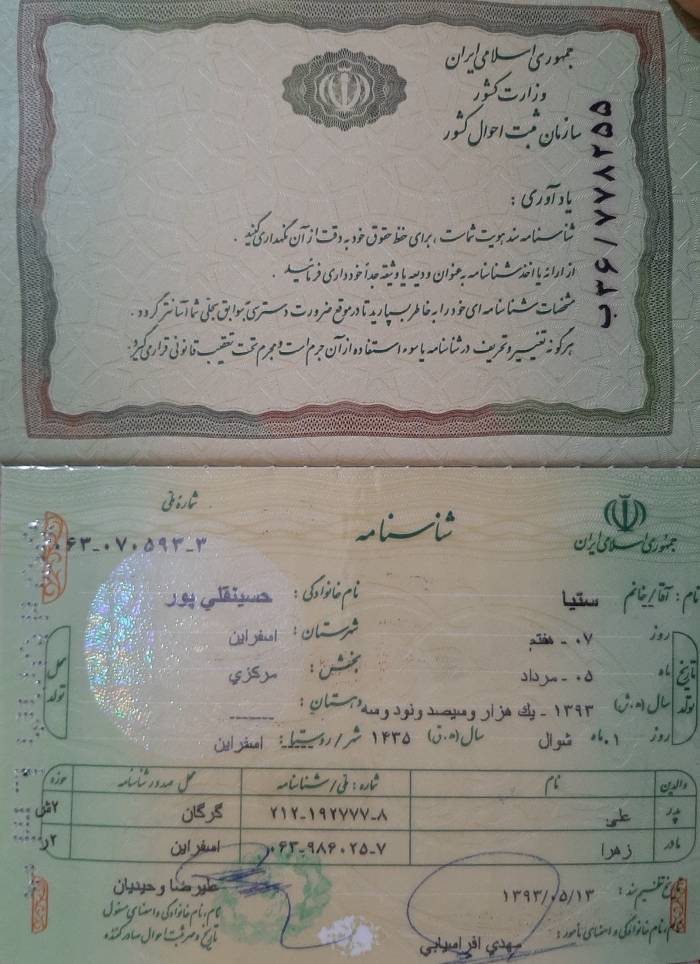 جمهوری اسلامی ایران
وزارت کشور
سازمان ثبت احوال کشور
ب۳۶/۷۷۸۲۵۵
یادآوری :
شناسنامه سند هویت شماست ، برای حفظ حقوق خود به دقت از آن نگهداری کنید .
از ارائه یا اخذ شناسنامه به عنوان ودیعه یا وثیقه جداً خودداری فرمائید .
مشخصات شناسنامه ای خود را به خاطر بسپارید تا در موقع ضرورت دسترسی به سوابق سجلی شما آسانتر گردد .
هرگونه تغییر و تحریف در شناسنامه یا سوء استفاده از آن جرم است و مجرم تحت تعقیب قانونی قرار می گیرد.
جمهوری اسلامی ایران
شناسنامه
شماره ملی
۰۶۳-۰۷۰۵۹۳-۳
نام : آقا/خانم ستیا نام خانوادگی : حسینقلي پور
تاریخ تولد
روز ۰۷ - هفتم شهرستان : اسفراین
ماه ۰۵ - مرداد بخش : مرکزي
سال (ه.ش) ۱۳۹۳ - یك هزار وسیصد ونود وسه دهستان : ------
روز ۱۰ ماه شوال سال (ه.ق) ۱۴۳۵ شهر/روستا : اسفراین
محل تولد
والدین نام شماره : ملی/شناسنامه محل صدور شناسنامه حوزه
پدر علي ۲۱۲-۱۹۲۷۷۷-۸ گرگان ۲ش
مادر زهرا ۰۶۳-۹۸۶۰۲۵-۷ اسفراین ۲ر
تاریخ تنظیم سند : ۱۳۹۳/۰۵/۱۳
نام،نام خانوادگی و امضای مأمور : مهدي افراسیابي
علیرضا وحیدیان
نام،نام خانوادگی و امضای مسئول
تاریخ و مهر ثبت احوال صادرکننده